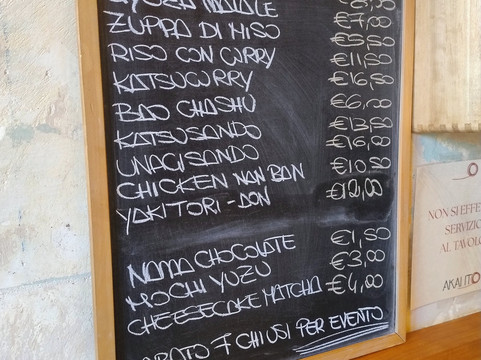 MAIALE €7,00
ZUPPA DI MISO €5,50
RISO CON CURRY €11,50
KATSUCURRY €16,50
BAO CHASHU €6,00
KATSUSANDO €13,50
UNAGISANDO €16,00
CHICKEN NAN BAN €10,50
YAKITORI-DON €12,00
NAMA CHOCOLATE €1,50
MOCHI YUZU €3,00
CHEESECAKE MATCHA €4,00
7 CHIUSI PER EVENTO
NON SI EFFE
SERVIZIO
AL TAVOLO
AKAITO